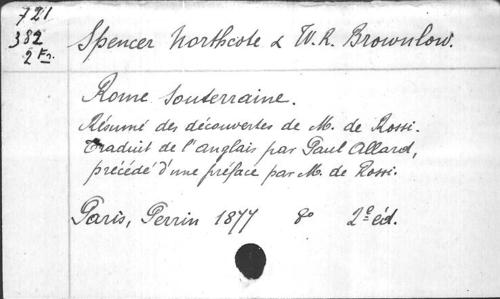 721
382
2 Fr.
Spencer Northcote & W.R. Brownlow.
Rome Souterraine.
Résumé des découvertes de M. de Rossi.
Traduit de l'anglais par Paul Allard,
précédé d'une préface par M. de Rossi.
Paris, Perrin 1877 8° 2e éd.